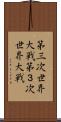 第三次世界
大戦第３次
世界大戦